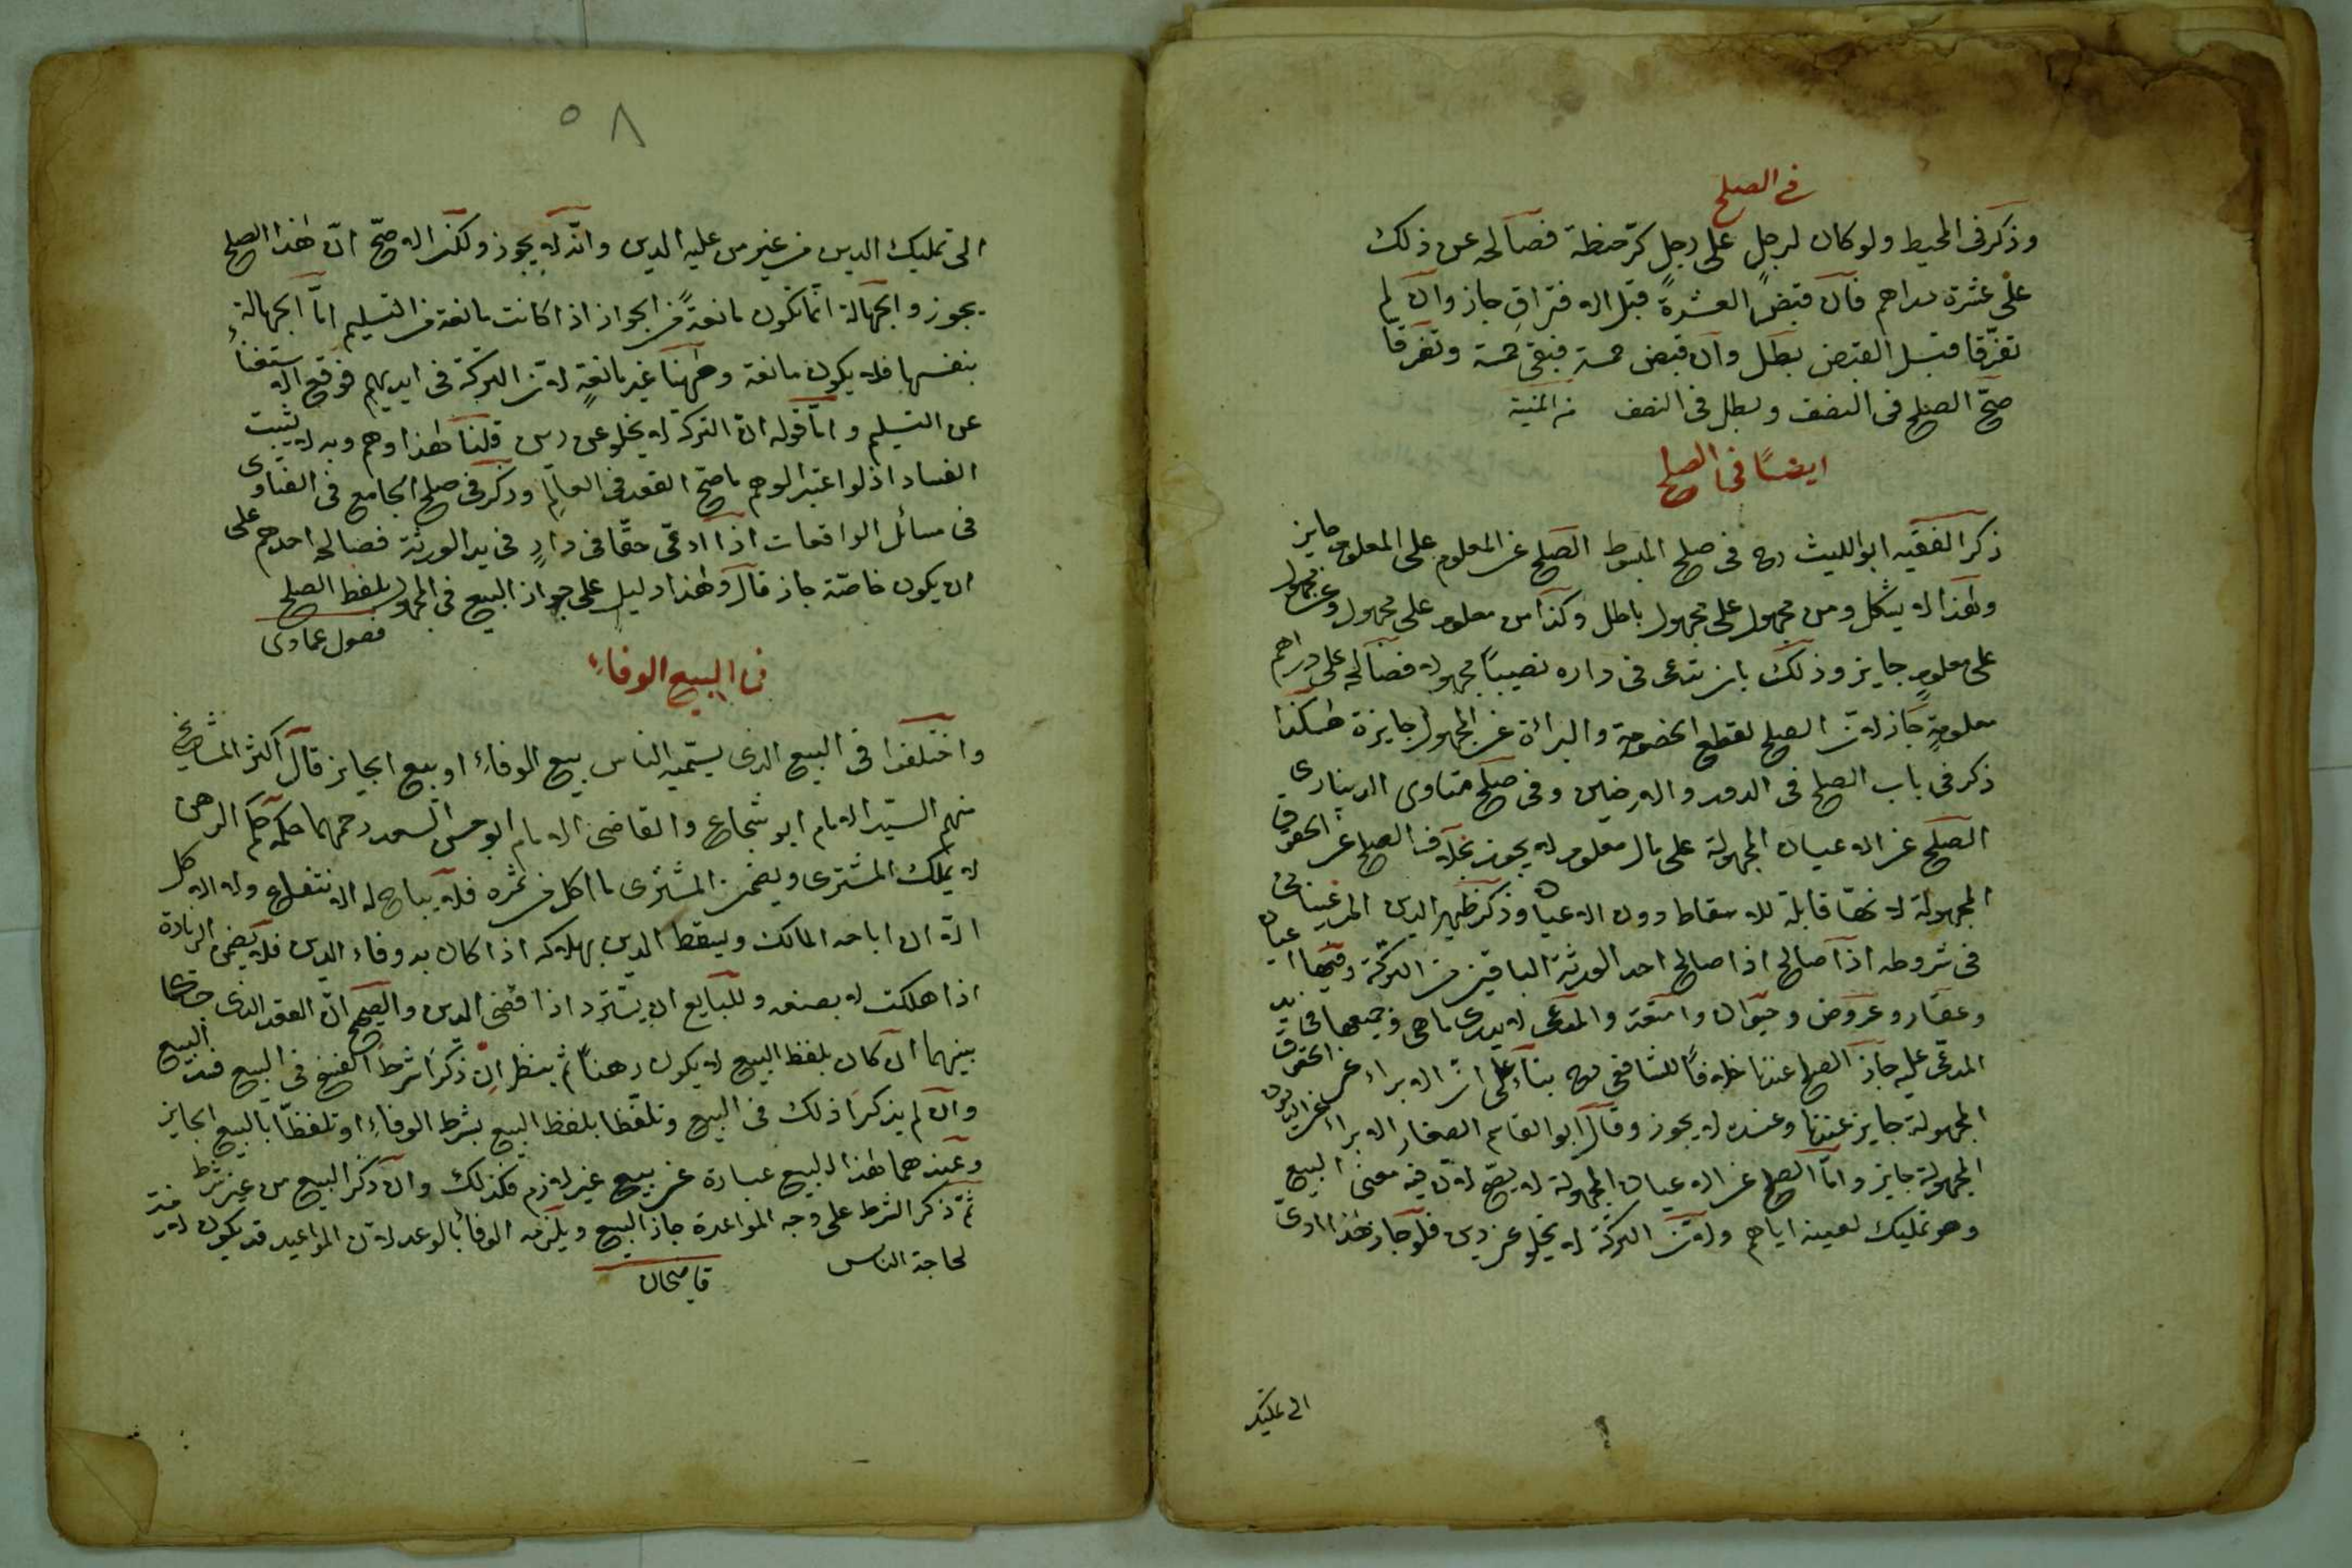 في الصلح
وذكر في المحيط ولو كان لرجل على رجل كرّ حنطة فصالحه عن ذلك
على عشرة دراهم فان قبض العشرة قبل الافتراق جاز وان لم
تفرّقا قبل القبض بطل وان قبض خمسة فبقي خمسة وتفرقا
صحّ الصلح في النصف وبطل في النصف من المنية
ايضًا في الصلح
ذكر الفقيه ابو الليث رح في صلح المبسوط الصلح عن المعلوم على المعلوم جايز
وهذا لا يشكل ومن مجهول على مجهول باطل وكذا من معلوم على مجهول وعن مجهول
على معلوم جايز وذلك بان يدعى في داره نصيبًا مجهولا فصالحه على دراهم
معلومة جاز لان الصلح لقطع الخصومة والبرائة عن المجهول جايزة هكذا
ذكر في باب الصلح في الدور والارضين وفي صلح فتاوى الديناري
الصلح عن الاعيان المجهولة على مال معلوم لا يجوز بخلاف الصلح عن الحقوق
المجهولة لانها قابلة للاسقاط دون الاعيان وذكر ظهير الدين المرغيناني
في شروطه اذا صالح اذا صالح احد الورثة الباقين من التركة وفيها اعيان
وعقار وعروض وحيوان وامتعة والمدعى لا يدرى ما هى وجميعها في يد
المدعى عليه جاز الصلح عندنا خلافًا للشافعى رح بناءً على ان الابراء عن الحقوق
المجهولة جايز عندنا وعنده لا يجوز وقال ابو القاسم الصفار الابراء عن الديون
المجهولة جايز وامّا الصلح عن الاعيان المجهولة لا يصحّ لان فيه معنى البيع
وهو تمليك لعينه اياهم ولان التركة لا يخلو عن دين فلو جاز هذا ادى
الى تمليك
٥٨
الى تمليك الدين من غير من عليه الدين وانّه لا يجوز ولكن الاصحّ انّ هذا الصلح
يجوز والجهالة انّما تكون مانعةً من الجواز اذا كانت مانعة من التسليم امّا الجهالة
بنفسها فلا يكون مانعة وههنا غير مانعةٍ لان التركة في ايديهم فوقع الاستغناء
عن التسليم وامّا قوله انّ التركة لا يخلو عن دين قلنا هذا وهم وبه لا يثبت
الفساد اذ لو اعتبر الوهم ما صحّ العقد في العالم وذكر في صلح الجامع في الفتاوى
في مسائل الواقعات اذا ادعى حقًا في دارٍ في يد الورثة فصالحه احدهم على
ان يكون خاصّة جاز قال وهذا دليل على جواز البيع في المجهول بلفظ الصلح
فصول عمادى
في البيع الوفاء
واختلفوا في البيع الذى يسمّيه الناس بيع الوفاء او بيع الجايز قال اكثر المشايخ
منهم السيّد الامام ابو شجاع والقاضى الامام ابو حسن السعد رحمهما حكمه حكم الرهن
لا يملك المشترى ويضمن المشترى ما اكل من ثمره فلا يباح له الانتفاع ولا الاكل
الا ان اباحه المالك ويسقط الدين بهلاكه اذا كان به وفاء الدين فلا يضمن الزيادة
اذا هلكت لا بصنعه وللبايع ان يستردّ اذا قضى الدين والصحيح انّ العقد الذى جرى
بينهما ان كان بلفظ البيع لا يكون رهنًا ثم ينظر ان ذكرا شرط الفسخ في البيع فسد البيع
وان لم يذكرا ذلك في البيع وتلفّظا بلفظ البيع بشرط الوفاء او تلفظّا بالبيع الجايز
وعندهما هذا البيع عبارة عن بيع غير لازم فكذلك وان ذكر البيع من غير شرط
ثمّ ذكر الشرط على وجه المواعدة جاز البيع ويلزمه الوفا بالوعد لان المواعيد قد يكون لازمة
لحاجة الناس قاضيخان